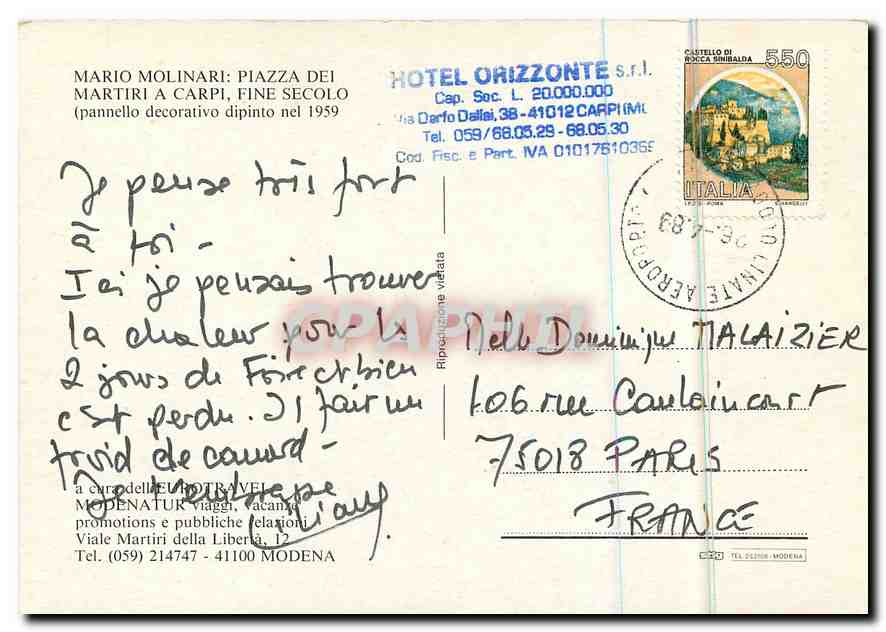 MARIO MOLINARI: PIAZZA DEI
MARTIRI A CARPI, FINE SECOLO
(pannello decorativo dipinto nel 1959
HOTEL ORIZZONTE s.r.l.
Cap. Soc. L. 20.000.000
Via Dorfo Dallai, 38 - 41012 CARPI (MO
Tel. 059/68.05.29 - 68.05.30
Cod. Fisc. e Part. IVA 01017610365
CASTELLO DI
ROCCA SINIBALDA
550
ITALIA
I.P.Z.S. - ROMA
LINATE AEROPORTO
26.-4.89
Je pense très fort
à toi -
Ici je pensais trouver
la chaleur pour les
2 jours de Foire et bien
c'est perdu. Il fait un
froid de canard -
Je t'embrasse
Liliane
a cura dell'EUROTRAVEL
MODENATUR viaggi, vacanze
promotions e pubbliche relazioni
Viale Martiri della Libertà, 12
Tel. (059) 214747 - 41100 MODENA
Riproduzione vietata
CPAPHIL
Melle Dominique MALAIZIER
106 rue Caulaincourt
75018 PARIS
FRANCE
MODENA